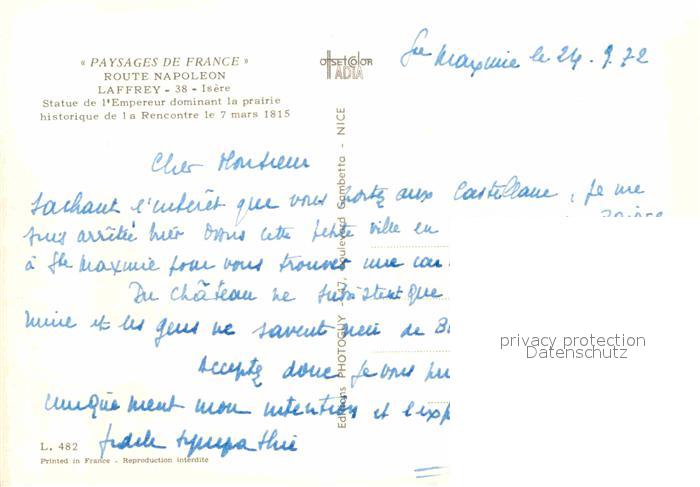 « PAYSAGES DE FRANCE »
ROUTE NAPOLEON
LAFFREY - 38 - Isère
Statue de l'Empereur dominant la prairie
historique de la Rencontre le 7 mars 1815
OFFSET COLOR
IADIA
Ste Maxime le 24. 9. 72
Cher Monsieur
Sachant l'intérêt que vous portez aux Castellane, je me
suis arrêtée hier dans cette petite ville en
à Ste Maxime pour vous trouver une car
Du château ne subsistent que
mine et les gens ne savent rien de
Acceptez donc je vous
uniquement mon intention et l'exp
fidèle sympathie
Editions PHOTOGUY - 147, Boulevard Gambetta - NICE
L. 482
Printed in France - Reproduction interdite
privacy protection
Datenschutz